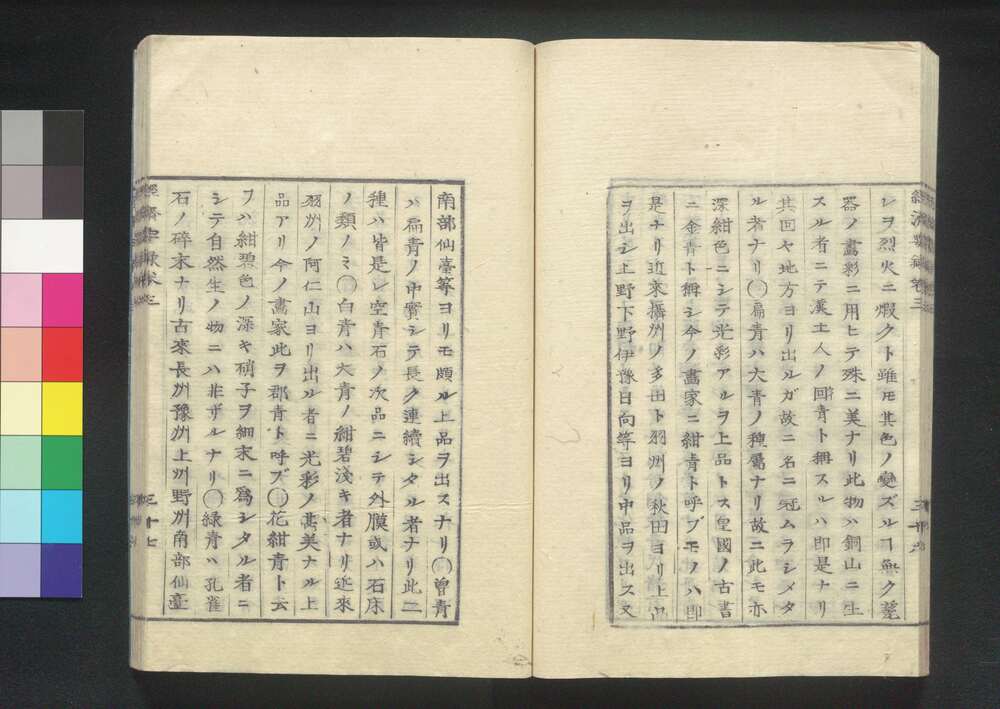 經濟要錄卷三
レヲ烈火ニ煆クト雖モ其色ノ變ズルヿ無ク甆
器ノ畵彩ニ用ヒテ殊ニ美ナリ此物ハ銅山ニ生
スル者ニテ漢土人ノ回青ト稱スルハ即是ナリ
其回ヤ地方ヨリ出ルガ故ニ名ニ冠ムラシメタ
ル者ナリ○扁青ハ大青ノ種屬ナリ故ニ此モ亦
深紺色ニシテ光彩アルヲ上品トス皇國ノ古書
ニ金青ト稱シ今ノ畵家ニ紺青ト呼ブモノハ即
是ナリ近來攝州ノ多田ト羽州ノ秋田ヨリ上品
ヲ出シ上野下野伊豫日向等ヨリ中品ヲ出ス又
南部仙臺等ヨリモ頗ル上品ヲ出スナリ○曾青
ハ扁青ノ中實シテ長ク連續シタル者ナリ此二
種ハ皆是レ空青石ノ次品ニシテ外膜或ハ石床
ノ類ノミ○白青ハ大青ノ紺碧淺キ者ナリ近來
羽州ノ阿仁山ヨリ出ル者ニ光彩ノ甚美ナル上
品アリ今ノ畵家此ヲ郡青ト呼ブ○花紺青ト云
フハ紺碧色ノ深キ硝子ヲ細末ニ爲シタル者ニ
シテ自然生ノ物ニハ非ザルナリ○緑青ハ孔雀
石ノ碎末ナリ古來長州豫州上州野州南部仙臺
三十七